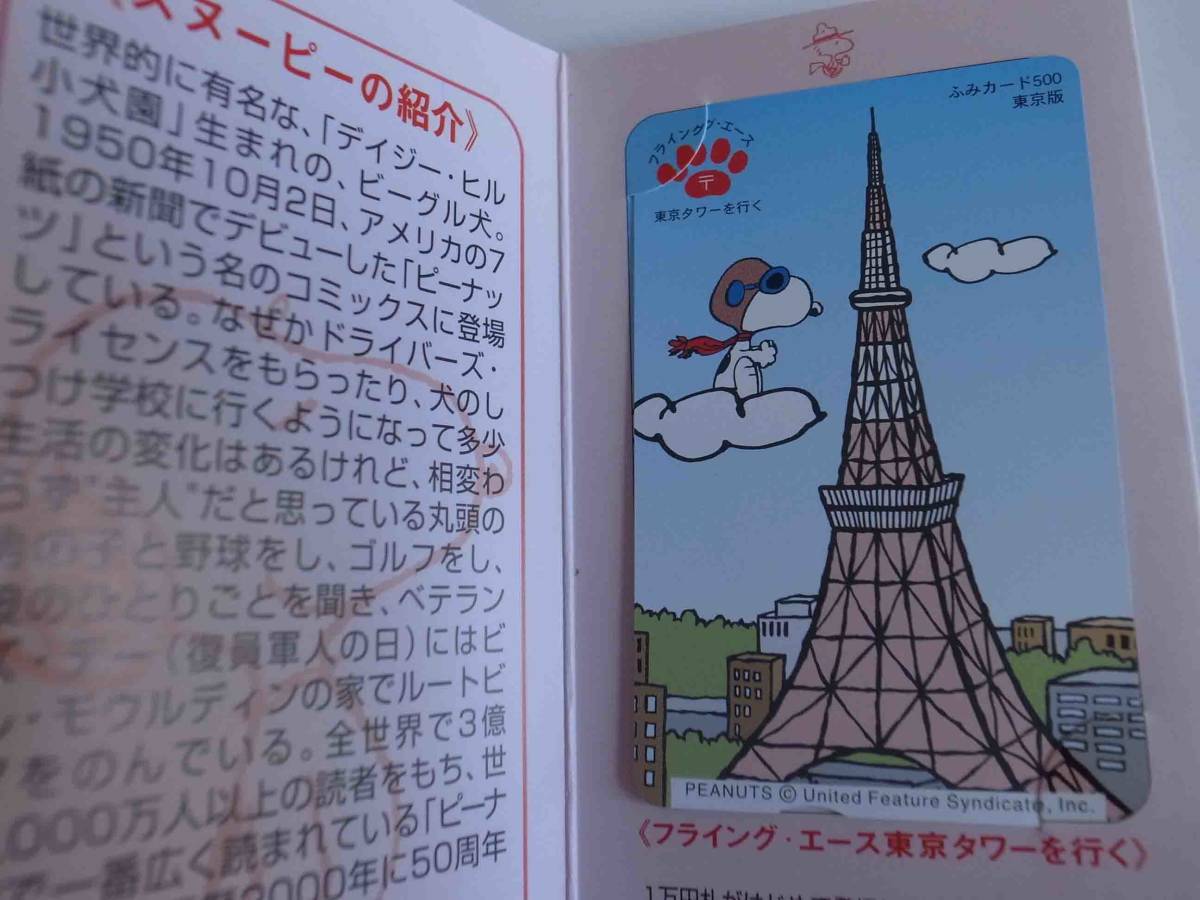 《スヌーピーの紹介》
世界的に有名な、「デイジー・ヒル
小犬園」生まれの、ビーグル犬。
1950年10月2日、アメリカの7
紙の新聞でデビューした「ピーナッ
ツ」という名のコミックスに登場
している。なぜかドライバーズ・
ライセンスをもらったり、犬のし
つけ学校に行くようになって多少
生活の変化はあるけれど、相変わ
らず"主人"だと思っている丸頭の
男の子と野球をし、ゴルフをし、
のひとりごとを聞き、ベテラン
ズ・デー(復員軍人の日)にはビ
ル・モウルディンの家でルートビ
をのんでいる。全世界で3億
,000万人以上の読者をもち、世
で一番広く読まれている「ピーナ
2000年に50周年
ふみカード500
東京版
フラインググ・エース
〒
東京タワーを行く
PEANUTS © United Feature Syndicate, Inc.
《フライング・エース東京タワーを行く》
1万円札がはじめ